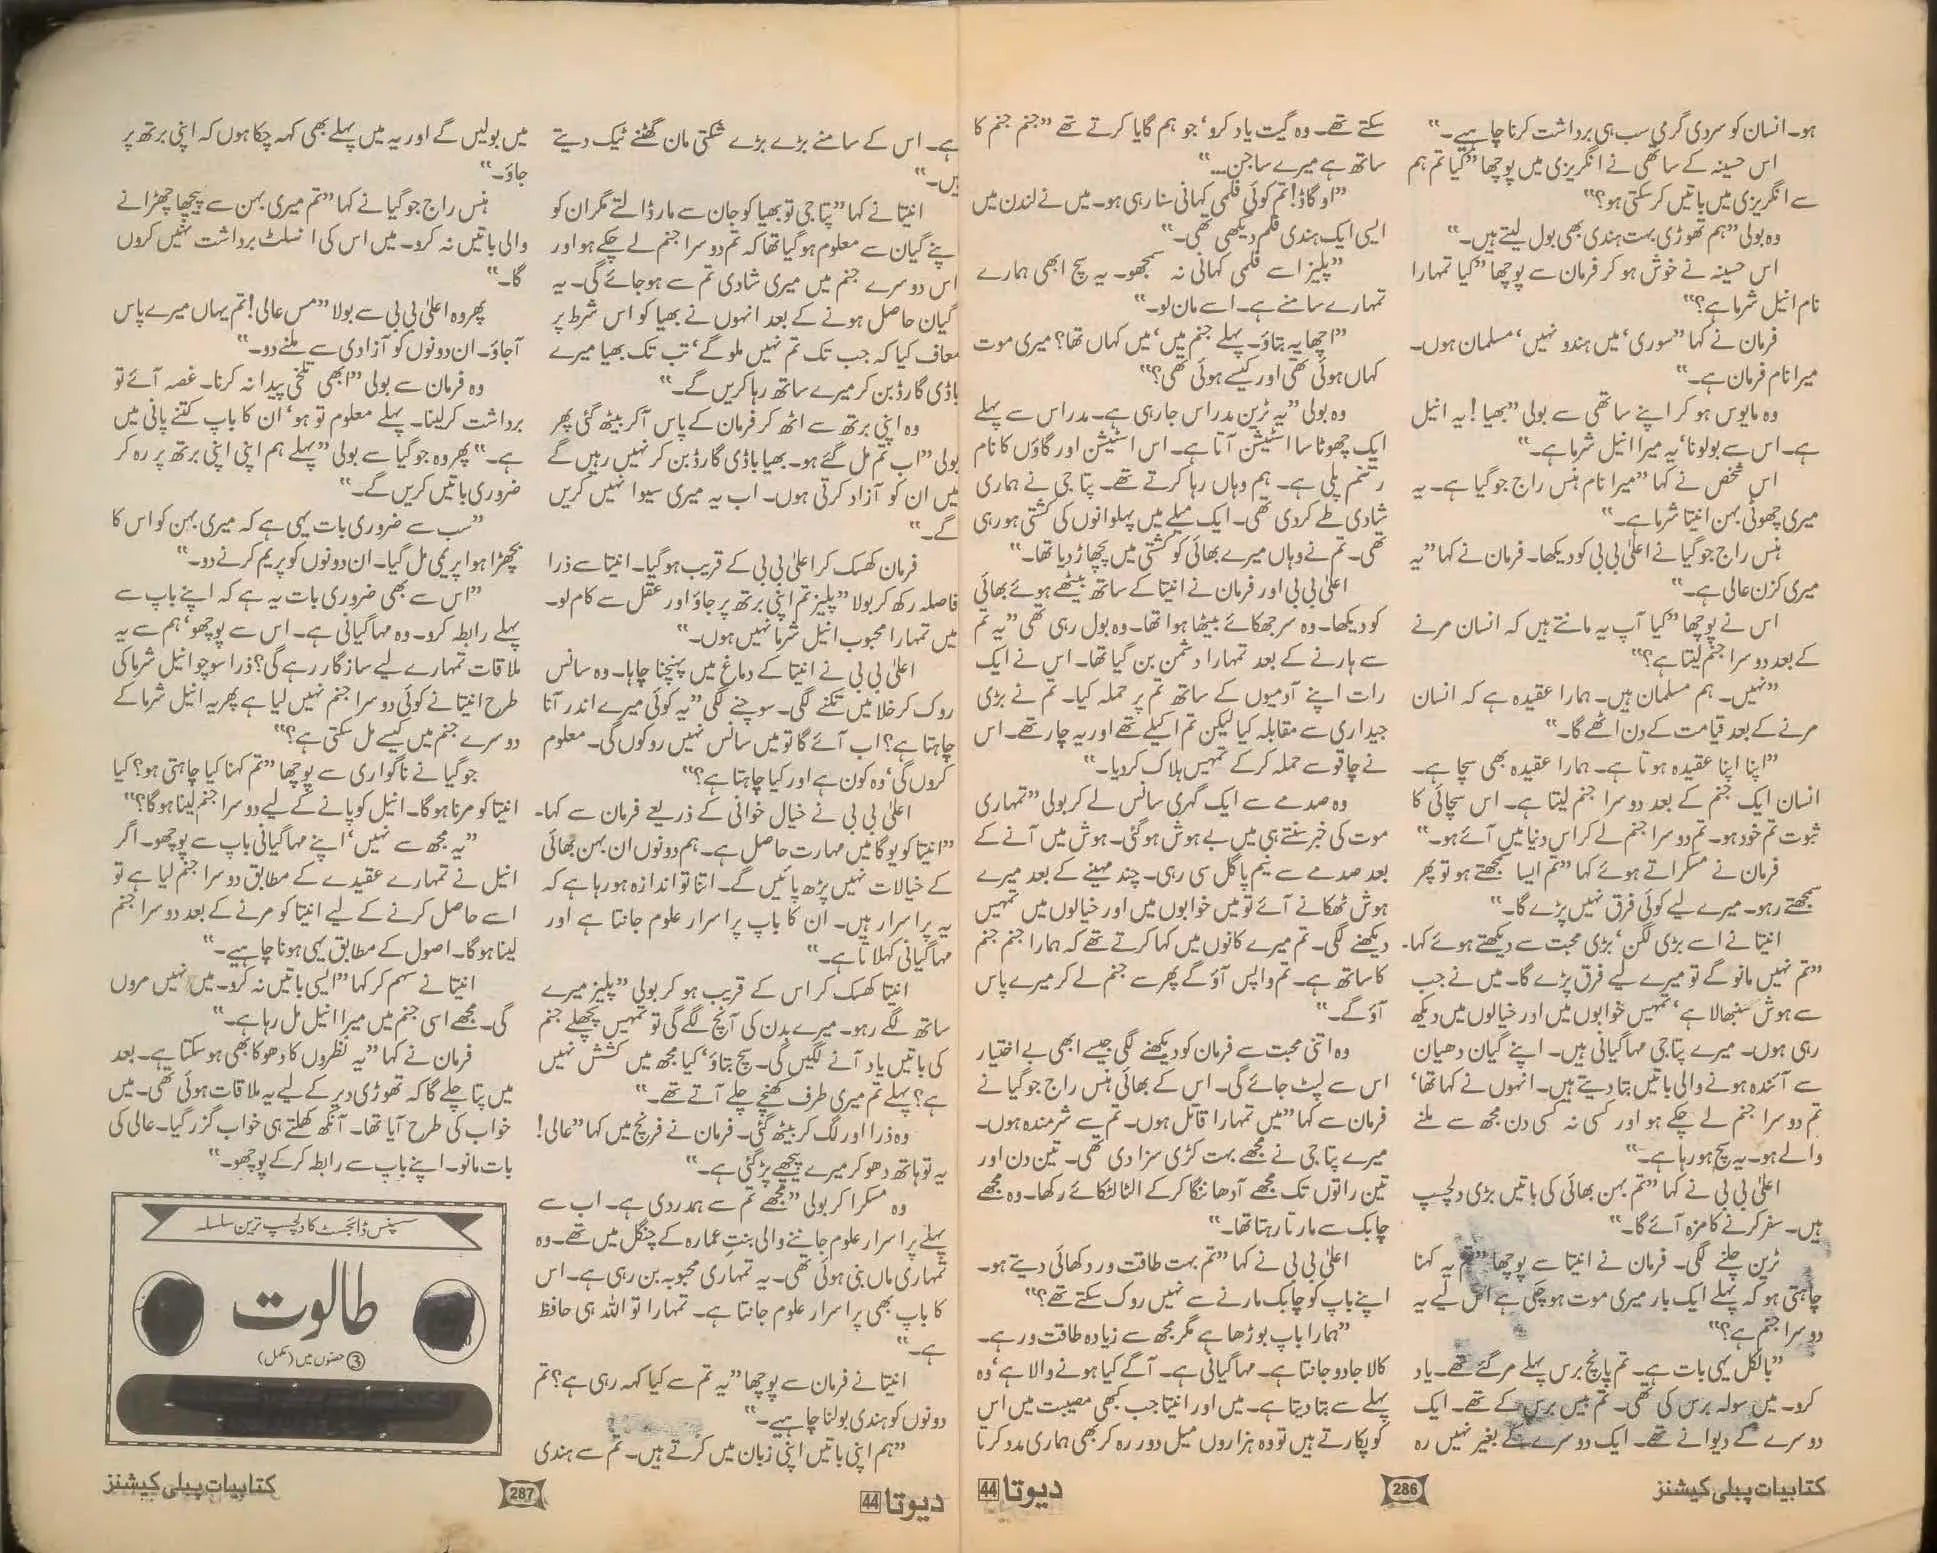 ہو۔ انسان کو سردی گرمی سب ہی برداشت کرنا چاہیے۔“
اس حسینہ کے ساتھی نے انگریزی میں پوچھا ”کیا تم ہم
سے انگریزی میں باتیں کر سکتی ہو؟“
وہ بولی ”ہم تھوڑی بہت ہندی بھی بول لیتے ہیں۔“
اس حسینہ نے خوش ہو کر فرمان سے پوچھا ”کیا تمہارا
نام انیل شرما ہے؟“
فرمان نے کہا ”سوری‘ میں ہندو نہیں‘ مسلمان ہوں۔
میرا نام فرمان ہے۔“
وہ مایوس ہو کر اپنے ساتھی سے بولی ”بھیا! یہ انیل
ہے۔ اس سے بولو نا‘ یہ میرا انیل شرما ہے۔“
اس شخص نے کہا ”میرا نام ہنس راج جوگیا ہے۔ یہ
میری چھوٹی بہن انیتا شرما ہے۔“
ہنس راج جوگیا نے اعلیٰ بی بی کو دیکھا۔ فرمان نے کہا ”یہ
میری کزن عالی ہے۔“
اس نے پوچھا ”کیا آپ یہ مانتے ہیں کہ انسان مرنے
کے بعد دوسرا جنم لیتا ہے؟“
”نہیں۔ ہم مسلمان ہیں۔ ہمارا عقیدہ ہے کہ انسان
مرنے کے بعد قیامت کے دن اٹھے گا۔“
”اپنا اپنا عقیدہ ہوتا ہے۔ ہمارا عقیدہ بھی سچا ہے۔
انسان ایک جنم کے بعد دوسرا جنم لیتا ہے۔ اس سچائی کا
ثبوت تم خود ہو۔ تم دوسرا جنم لے کر اس دنیا میں آئے ہو۔“
فرمان نے مسکراتے ہوئے کہا ”تم ایسا سمجھتے ہو تو پھر
سمجھتے رہو۔ میرے لیے کوئی فرق نہیں پڑے گا۔“
انیتا نے اسے بڑی لگن‘ بڑی محبت سے دیکھتے ہوئے کہا۔
”تم نہیں مانو گے تو میرے لیے فرق پڑے گا۔ میں نے جب
سے ہوش سنبھالا ہے‘ تمہیں خوابوں میں اور خیالوں میں دیکھ
رہی ہوں۔ میرے پتا جی مہاگیانی ہیں۔ اپنے گیان دھیان
سے آئندہ ہونے والی باتیں بتا دیتے ہیں۔ انہوں نے کہا تھا‘
تم دوسرا جنم لے چکے ہو اور کسی نہ کسی دن مجھ سے ملنے
والے ہو۔ یہ سچ ہو رہا ہے۔“
اعلیٰ بی بی نے کہا ”تم بہن بھائی کی باتیں بڑی دلچسپ
ہیں۔ سفر کرنے کا مزہ آئے گا۔“
ٹرین چلنے لگی۔ فرمان نے انیتا سے پوچھا ”تم یہ کہنا
چاہتی ہو کہ پہلے ایک بار میری موت ہو چکی ہے اس لیے یہ
دوسرا جنم ہے؟“
”بالکل یہی بات ہے۔ تم پانچ برس پہلے مر گئے تھے۔ یاد
کرو۔ میں سولہ برس کی تھی۔ تم بیس برس کے تھے۔ ایک
دوسرے کے دیوانے تھے۔ ایک دوسرے کے بغیر نہیں رہ
سکتے تھے۔ وہ گیت یاد کرو‘ جو ہم گایا کرتے تھے ”جنم جنم کا
ساتھ ہے میرے ساجن...“
”او گاڈ! تم کوئی فلمی کہانی سنا رہی ہو۔ میں نے لندن میں
ایسی ایک ہندی فلم دیکھی تھی۔“
”پلیز اسے فلمی کہانی نہ سمجھو۔ یہ سچ ابھی ہمارے
تمہارے سامنے ہے۔ اسے مان لو۔“
”اچھا یہ بتاؤ۔ پہلے جنم میں‘ میں کہاں تھا؟ میری موت
کہاں ہوئی تھی اور کیسے ہوئی تھی؟“
وہ بولی ”یہ ٹرین مدراس جا رہی ہے۔ مدراس سے پہلے
ایک چھوٹا سا اسٹیشن آتا ہے۔ اس اسٹیشن اور گاؤں کا نام
رتنم پلی ہے۔ ہم وہاں رہا کرتے تھے۔ پتا جی نے ہماری
شادی طے کر دی تھی۔ ایک میلے میں پہلوانوں کی کشتی ہو رہی
تھی۔ تم نے وہاں میرے بھائی کو کشتی میں پچھاڑ دیا تھا۔“
اعلیٰ بی بی اور فرمان نے انیتا کے ساتھ بیٹھے ہوئے بھائی
کو دیکھا۔ وہ سر جھکائے بیٹھا ہوا تھا۔ وہ بول رہی تھی ”یہ تم
سے ہارنے کے بعد تمہارا دشمن بن گیا تھا۔ اس نے ایک
رات اپنے آدمیوں کے ساتھ تم پر حملہ کیا۔ تم نے بڑی
جیداری سے مقابلہ کیا لیکن تم اکیلے تھے اور یہ چار تھے۔ اس
نے چاقو سے حملہ کر کے تمہیں ہلاک کر دیا۔“
وہ صدمے سے ایک گہری سانس لے کر بولی ”تمہاری
موت کی خبر سنتے ہی میں بے ہوش ہو گئی۔ ہوش میں آنے کے
بعد صدمے سے نیم پاگل سی رہی۔ چند مہینے کے بعد میرے
ہوش ٹھکانے آئے تو میں خوابوں میں اور خیالوں میں تمہیں
دیکھنے لگی۔ تم میرے کانوں میں کہا کرتے تھے کہ ہمارا جنم جنم
کا ساتھ ہے۔ تم واپس آؤ گے پھر سے جنم لے کر میرے پاس
آؤ گے۔“
وہ اتنی محبت سے فرمان کو دیکھنے لگی جیسے ابھی بے اختیار
اس سے لپٹ جائے گی۔ اس کے بھائی ہنس راج جوگیا نے
فرمان سے کہا ”میں تمہارا قاتل ہوں۔ تم سے شرمندہ ہوں۔
میرے پتا جی نے مجھے بہت کڑی سزا دی تھی۔ تین دن اور
تین راتوں تک مجھے آدھا ننگا کر کے الٹا لٹکائے رکھا۔ وہ مجھے
چابک سے مارتا رہتا تھا۔“
اعلیٰ بی بی نے کہا ”تم بہت طاقت ور دکھائی دیتے ہو۔
اپنے باپ کو چابک مارنے سے نہیں روک سکتے تھے؟“
”ہمارا باپ بوڑھا ہے مگر مجھ سے زیادہ طاقت ور ہے۔
کالا جادو جانتا ہے۔ مہاگیانی ہے۔ آگے کیا ہونے والا ہے‘ وہ
پہلے سے بتا دیتا ہے۔ میں اور انیتا جب کبھی مصیبت میں اس
کو پکارتے ہیں تو وہ ہزاروں میل دور رہ کر بھی ہماری مدد کرتا
کتابیات پبلی کیشنز
286
دیوتا 44
ہے۔ اس کے سامنے بڑے بڑے شکتی مان گھٹنے ٹیک دیتے
ہیں۔“
انیتا نے کہا ”پتا جی تو بھیا کو جان سے مار ڈالتے مگر ان کو
اپنے گیان سے معلوم ہو گیا تھا کہ تم دوسرا جنم لے چکے ہو اور
اس دوسرے جنم میں میری شادی تم سے ہو جائے گی۔ یہ
گیان حاصل ہونے کے بعد انہوں نے بھیا کو اس شرط پر
معاف کیا کہ جب تک تم نہیں ملو گے‘ تب تک بھیا میرے
باڈی گارڈ بن کر میرے ساتھ رہا کریں گے۔“
وہ اپنی برتھ سے اٹھ کر فرمان کے پاس آ کر بیٹھ گئی پھر
بولی ”اب تم مل گئے ہو۔ بھیا باڈی گارڈ بن کر نہیں رہیں گے
میں ان کو آزاد کرتی ہوں۔ اب یہ میری سیوا نہیں کریں
گے۔“
فرمان کھسک کر اعلیٰ بی بی کے قریب ہو گیا۔ انیتا سے ذرا
فاصلہ رکھ کر بولا ”پلیز تم اپنی برتھ پر جاؤ اور عقل سے کام لو۔
میں تمہارا محبوب انیل شرما نہیں ہوں۔“
اعلیٰ بی بی نے انیتا کے دماغ میں پہنچنا چاہا۔ وہ سانس
روک کر خلا میں تکنے لگی۔ سوچنے لگی ”یہ کوئی میرے اندر آنا
چاہتا ہے؟ اب آئے گا تو میں سانس نہیں روکوں گی۔ معلوم
کروں گی‘ وہ کون ہے اور کیا چاہتا ہے؟“
اعلیٰ بی بی نے خیال خوانی کے ذریعے فرمان سے کہا۔
”انیتا کو یوگا میں مہارت حاصل ہے۔ ہم دونوں ان بہن بھائی
کے خیالات نہیں پڑھ پائیں گے۔ اتنا تو اندازہ ہو رہا ہے کہ
یہ پراسرار ہیں۔ ان کا باپ پراسرار علوم جانتا ہے اور
مہاگیانی کہلاتا ہے۔“
انیتا کھسک کر اس کے قریب ہو کر بولی ”پلیز میرے
ساتھ لگے رہو۔ میرے بدن کی آنچ لگے گی تو تمہیں پچھلے جنم
کی باتیں یاد آنے لگیں گی۔ سچ بتاؤ‘ کیا مجھ میں کشش نہیں
ہے؟ پہلے تم میری طرف کھنچے چلے آتے تھے۔“
وہ ذرا اور لگ کر بیٹھ گئی۔ فرمان نے فرنچ میں کہا ”عالی!
یہ تو ہاتھ دھو کر میرے پیچھے پڑ گئی ہے۔“
وہ مسکرا کر بولی ”مجھے تم سے ہمدردی ہے۔ اب سے
پہلے پراسرار علوم جاننے والی بنتِ عمارہ کے چنگل میں تھے۔ وہ
تمہاری ماں بنی ہوئی تھی۔ یہ تمہاری محبوبہ بن رہی ہے۔ اس
کا باپ بھی پراسرار علوم جانتا ہے۔ تمہارا تو اللہ ہی حافظ
ہے۔“
انیتا نے فرمان سے پوچھا ”یہ تم سے کیا کہہ رہی ہے؟ تم
دونوں کو ہندی بولنا چاہیے۔“
”ہم اپنی باتیں اپنی زبان میں کرتے ہیں۔ تم سے ہندی
میں بولیں گے اور یہ میں پہلے بھی کہہ چکا ہوں کہ اپنی برتھ پر
جاؤ۔“
ہنس راج جوگیا نے کہا ”تم میری بہن سے پیچھا چھڑانے
والی باتیں نہ کرو۔ میں اس کی انسلٹ برداشت نہیں کروں
گا۔“
پھر وہ اعلیٰ بی بی سے بولا ”مس عالی! تم یہاں میرے پاس
آ جاؤ۔ ان دونوں کو آزادی سے ملنے دو۔“
وہ فرمان سے بولی ”ابھی تلخی پیدا نہ کرنا۔ غصہ آئے تو
برداشت کر لینا۔ پہلے معلوم تو ہو‘ ان کا باپ کتنے پانی میں
ہے۔“ پھر وہ جوگیا سے بولی ”پہلے ہم اپنی اپنی برتھ پر رہ کر
ضروری باتیں کریں گے۔“
”سب سے ضروری بات یہی ہے کہ میری بہن کو اس کا
بچھڑا ہوا پریمی مل گیا۔ ان دونوں کو پریم کرنے دو۔“
”اس سے بھی ضروری بات یہ ہے کہ اپنے باپ سے
پہلے رابطہ کرو۔ وہ مہاگیانی ہے۔ اس سے پوچھو‘ ہم سے یہ
ملاقات تمہارے لیے سازگار رہے گی؟ ذرا سوچو انیل شرما کی
طرح انیتا نے کوئی دوسرا جنم نہیں لیا ہے پھر یہ انیل شرما کے
دوسرے جنم میں کیسے مل سکتی ہے؟“
جوگیا نے ناگواری سے پوچھا ”تم کہنا کیا چاہتی ہو؟ کیا
انیتا کو مرنا ہو گا۔ انیل کو پانے کے لیے دوسرا جنم لینا ہو گا؟“
”یہ مجھ سے نہیں‘ اپنے مہاگیانی باپ سے پوچھو۔ اگر
انیل نے تمہارے عقیدے کے مطابق دوسرا جنم لیا ہے تو
اسے حاصل کرنے کے لیے انیتا کو مرنے کے بعد دوسرا جنم
لینا ہو گا۔ اصول کے مطابق یہی ہونا چاہیے۔“
انیتا نے سہم کر کہا ”ایسی باتیں نہ کرو۔ میں نہیں مروں
گی۔ مجھے اسی جنم میں میرا انیل مل رہا ہے۔“
فرمان نے کہا ”یہ نظروں کا دھوکا بھی ہو سکتا ہے۔ بعد
میں پتا چلے گا کہ تھوڑی دیر کے لیے یہ ملاقات ہوئی تھی۔ میں
خواب کی طرح آیا تھا۔ آنکھ کھلتے ہی خواب گزر گیا۔ عالی کی
بات مانو۔ اپنے باپ سے رابطہ کر کے پوچھو۔“
سسپنس ڈائجسٹ کا دلچسپ ترین سلسلہ
طالوت
3 حصوں میں (مکمل)
دیوتا 44
287
کتابیات پبلی کیشنز